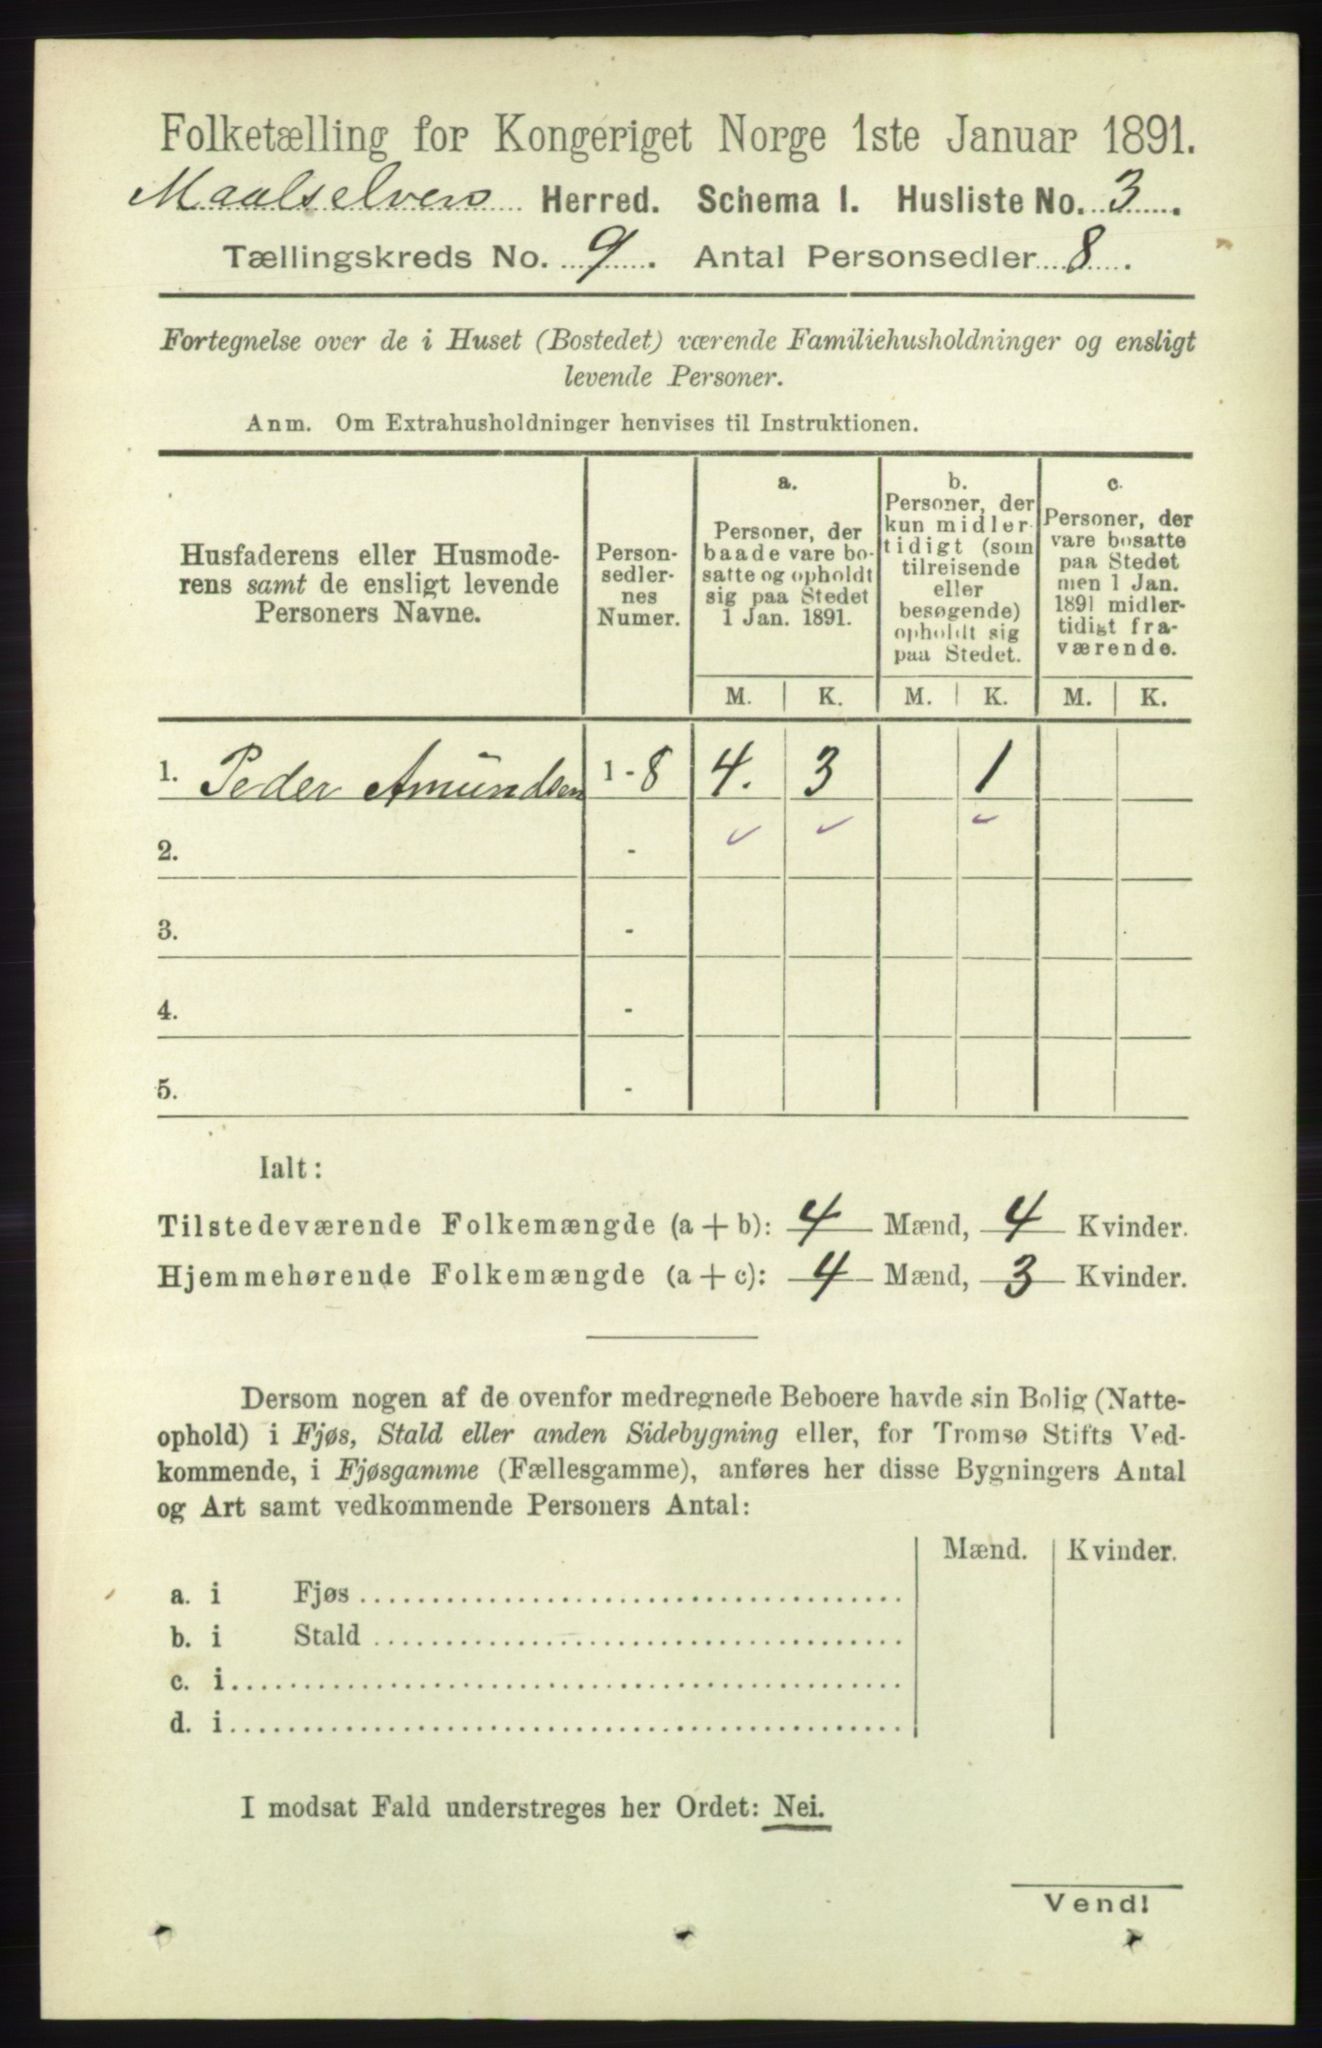 Folketælling for Kongeriget Norge 1ste Januar 1891.
Maalselvens Herred. Schema I. Husliste No. 3.
Tællingskreds No. 9. Antal Personsedler 8.
Fortegnelse over de i Huset (Bostedet) værende Familiehusholdninger og ensligt
levende Personer.
Anm. Om Extrahusholdninger henvises til Instruktionen.
Husfaderens eller Husmode-
rens samt de ensligt levende
Personers Navne.
Person-
sedler-
nes
Numer.
a.
Personer, der
baade vare bo-
satte og opholdt
sig paa Stedet
1 Jan. 1891.
b.
Personer, der
kun midler-
tidigt (som
tilreisende
eller
besøgende)
opholdt sig
paa Stedet.
c.
Personer, der
vare bosatte
paa Stedet
men 1 Jan.
1891 midler-
tidigt fra-
værende.
M. K. M. K. M. K.
1. Peder Amundsen 1 - 8 4. 3 1
2. -
3. -
4. -
5. -
Ialt:
Tilstedeværende Folkemængde (a + b): 4 Mænd, 4 Kvinder.
Hjemmehørende Folkemængde (a + c): 4 Mænd, 3 Kvinder.
Dersom nogen af de ovenfor medregnede Beboere havde sin Bolig (Natte-
ophold) i Fjøs, Stald eller anden Sidebygning eller, for Tromsø Stifts Ved-
kommende, i Fjøsgamme (Fællesgamme), anføres her disse Bygningers Antal
og Art samt vedkommende Personers Antal:
Mænd. Kvinder.
a. i Fjøs
b. i Stald
c. i
d. i
I modsat Fald understreges her Ordet: Nei.
Vend!